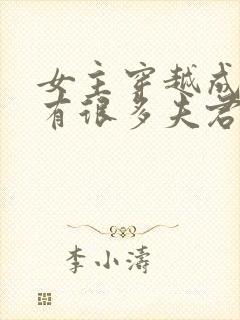 女主穿越成
有很多夫君
李小濤